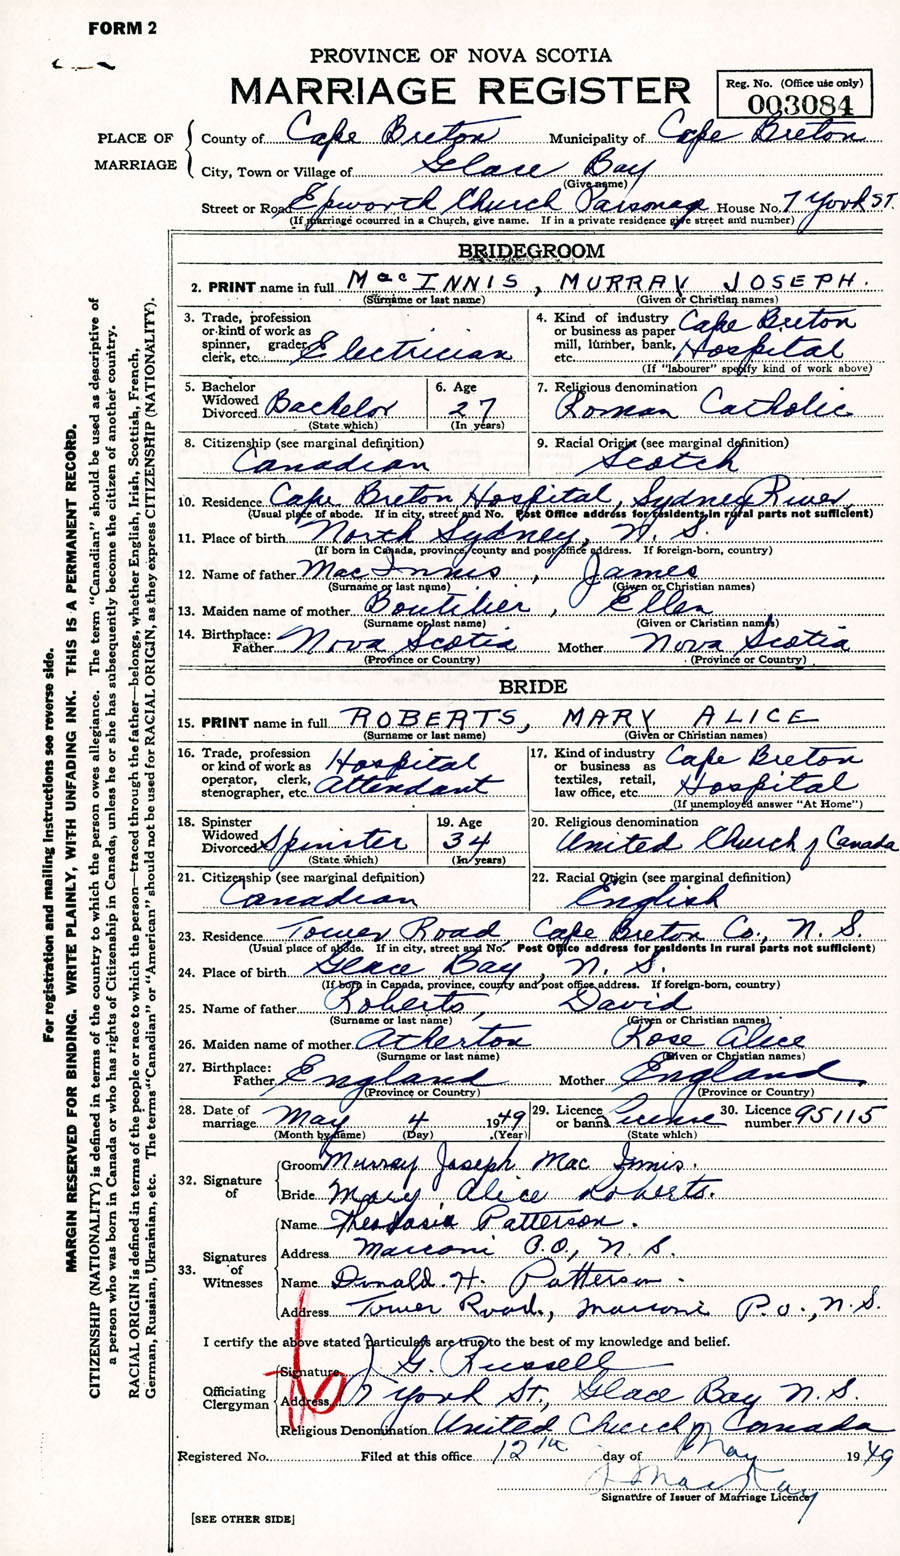 FORM 2
PROVINCE OF NOVA SCOTIA
MARRIAGE REGISTER
Reg. No. (Office use only)
003084
PLACE OF MARRIAGE
County of Cape Breton Municipality of Cape Breton
City, Town or Village of Glace Bay
(Give name)
Street or Road Epworth Church Parsonage House No. 7 York St.
(If marriage occurred in a Church, give name. If in a private residence give street and number)
BRIDEGROOM
2. PRINT name in full MacINNIS, MURRAY JOSEPH.
(Surname or last name) (Given or Christian names)
3. Trade, profession or kind of work as spinner, grader, clerk, etc. Electrician
4. Kind of industry or business as paper mill, lumber, bank, etc. Cape Breton Hospital
(If "labourer" specify kind of work above)
5. Bachelor Widowed Divorced Bachelor
(State which)
6. Age 27
(In years)
7. Religious denomination
Roman Catholic
8. Citizenship (see marginal definition)
Canadian
9. Racial Origin (see marginal definition)
Scotch
10. Residence Cape Breton Hospital, Sydney River
(Usual place of abode. If in city, street and No. Post Office address for residents in rural parts not sufficient)
11. Place of birth North Sydney, N. S.
(If born in Canada, province, county and post office address. If foreign-born, country)
12. Name of father Mac Innis, James
(Surname or last name) (Given or Christian names)
13. Maiden name of mother Boutilier, Ellen
(Surname or last name) (Given or Christian names)
14. Birthplace: Father Nova Scotia Mother Nova Scotia
(Province or Country) (Province or Country)
BRIDE
15. PRINT name in full ROBERTS, MARY ALICE
(Surname or last name) (Given or Christian names)
16. Trade, profession or kind of work as operator, clerk, stenographer, etc. Hospital Attendant
17. Kind of industry or business as textiles, retail, law office, etc. Cape Breton Hospital
(If unemployed answer "At Home")
18. Spinster Widowed Divorced Spinster
(State which)
19. Age 34
(In years)
20. Religious denomination
United Church of Canada
21. Citizenship (see marginal definition)
Canadian
22. Racial Origin (see marginal definition)
English
23. Residence Tower Road Cape Breton Co., N. S.
(Usual place of abode. If in city, street and No. Post Office address for residents in rural parts not sufficient)
24. Place of birth Glace Bay, N. S.
(If born in Canada, province, county and post office address. If foreign-born, country)
25. Name of father Roberts, David
(Surname or last name) (Given or Christian names)
26. Maiden name of mother Atherton Rose Alice
(Surname or last name) (Given or Christian names)
27. Birthplace: Father England Mother England
(Province or Country) (Province or Country)
28. Date of marriage May 4 1949
(Month by name) (Day) (Year)
29. Licence or banns License
(State which)
30. Licence number 95115
32. Signature of
Groom Murray Joseph Mac Innis.
Bride Mary Alice Roberts.
33. Signatures of Witnesses
Name Theodasia Patterson.
Address Marconi P.O., N. S.
Name Donald. H. Patterson.
Address Tower Road, Marconi P.O., N.S.
I certify the above stated particulars are true to the best of my knowledge and belief.
Officiating Clergyman
Signature J. G. Russell
Address 7 York St., Glace Bay N. S.
Religious Denomination United Church of Canada
Registered No. Filed at this office 12th day of May 1949
J MacKay
Signature of Issuer of Marriage Licence
[SEE OTHER SIDE]
For registration and mailing instructions see reverse side.
MARGIN RESERVED FOR BINDING. WRITE PLAINLY, WITH UNFADING INK. THIS IS A PERMANENT RECORD.
CITIZENSHIP (NATIONALITY) is defined in terms of the country to which the person owes allegiance. The term "Canadian" should be used as descriptive of
a person who was born in Canada or who has rights of Citizenship in Canada, unless he or she has subsequently become the citizen of another country.
RACIAL ORIGIN is defined in terms of the people or race to which the person—traced through the father—belongs, whether English, Irish, Scottish, French,
German, Russian, Ukrainian, etc. The terms "Canadian" or "American" should not be used for RACIAL ORIGIN, as they express CITIZENSHIP (NATIONALITY).